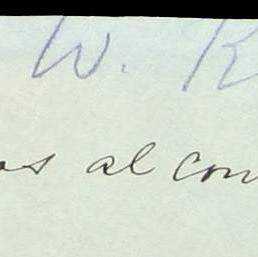 W. R
os al con